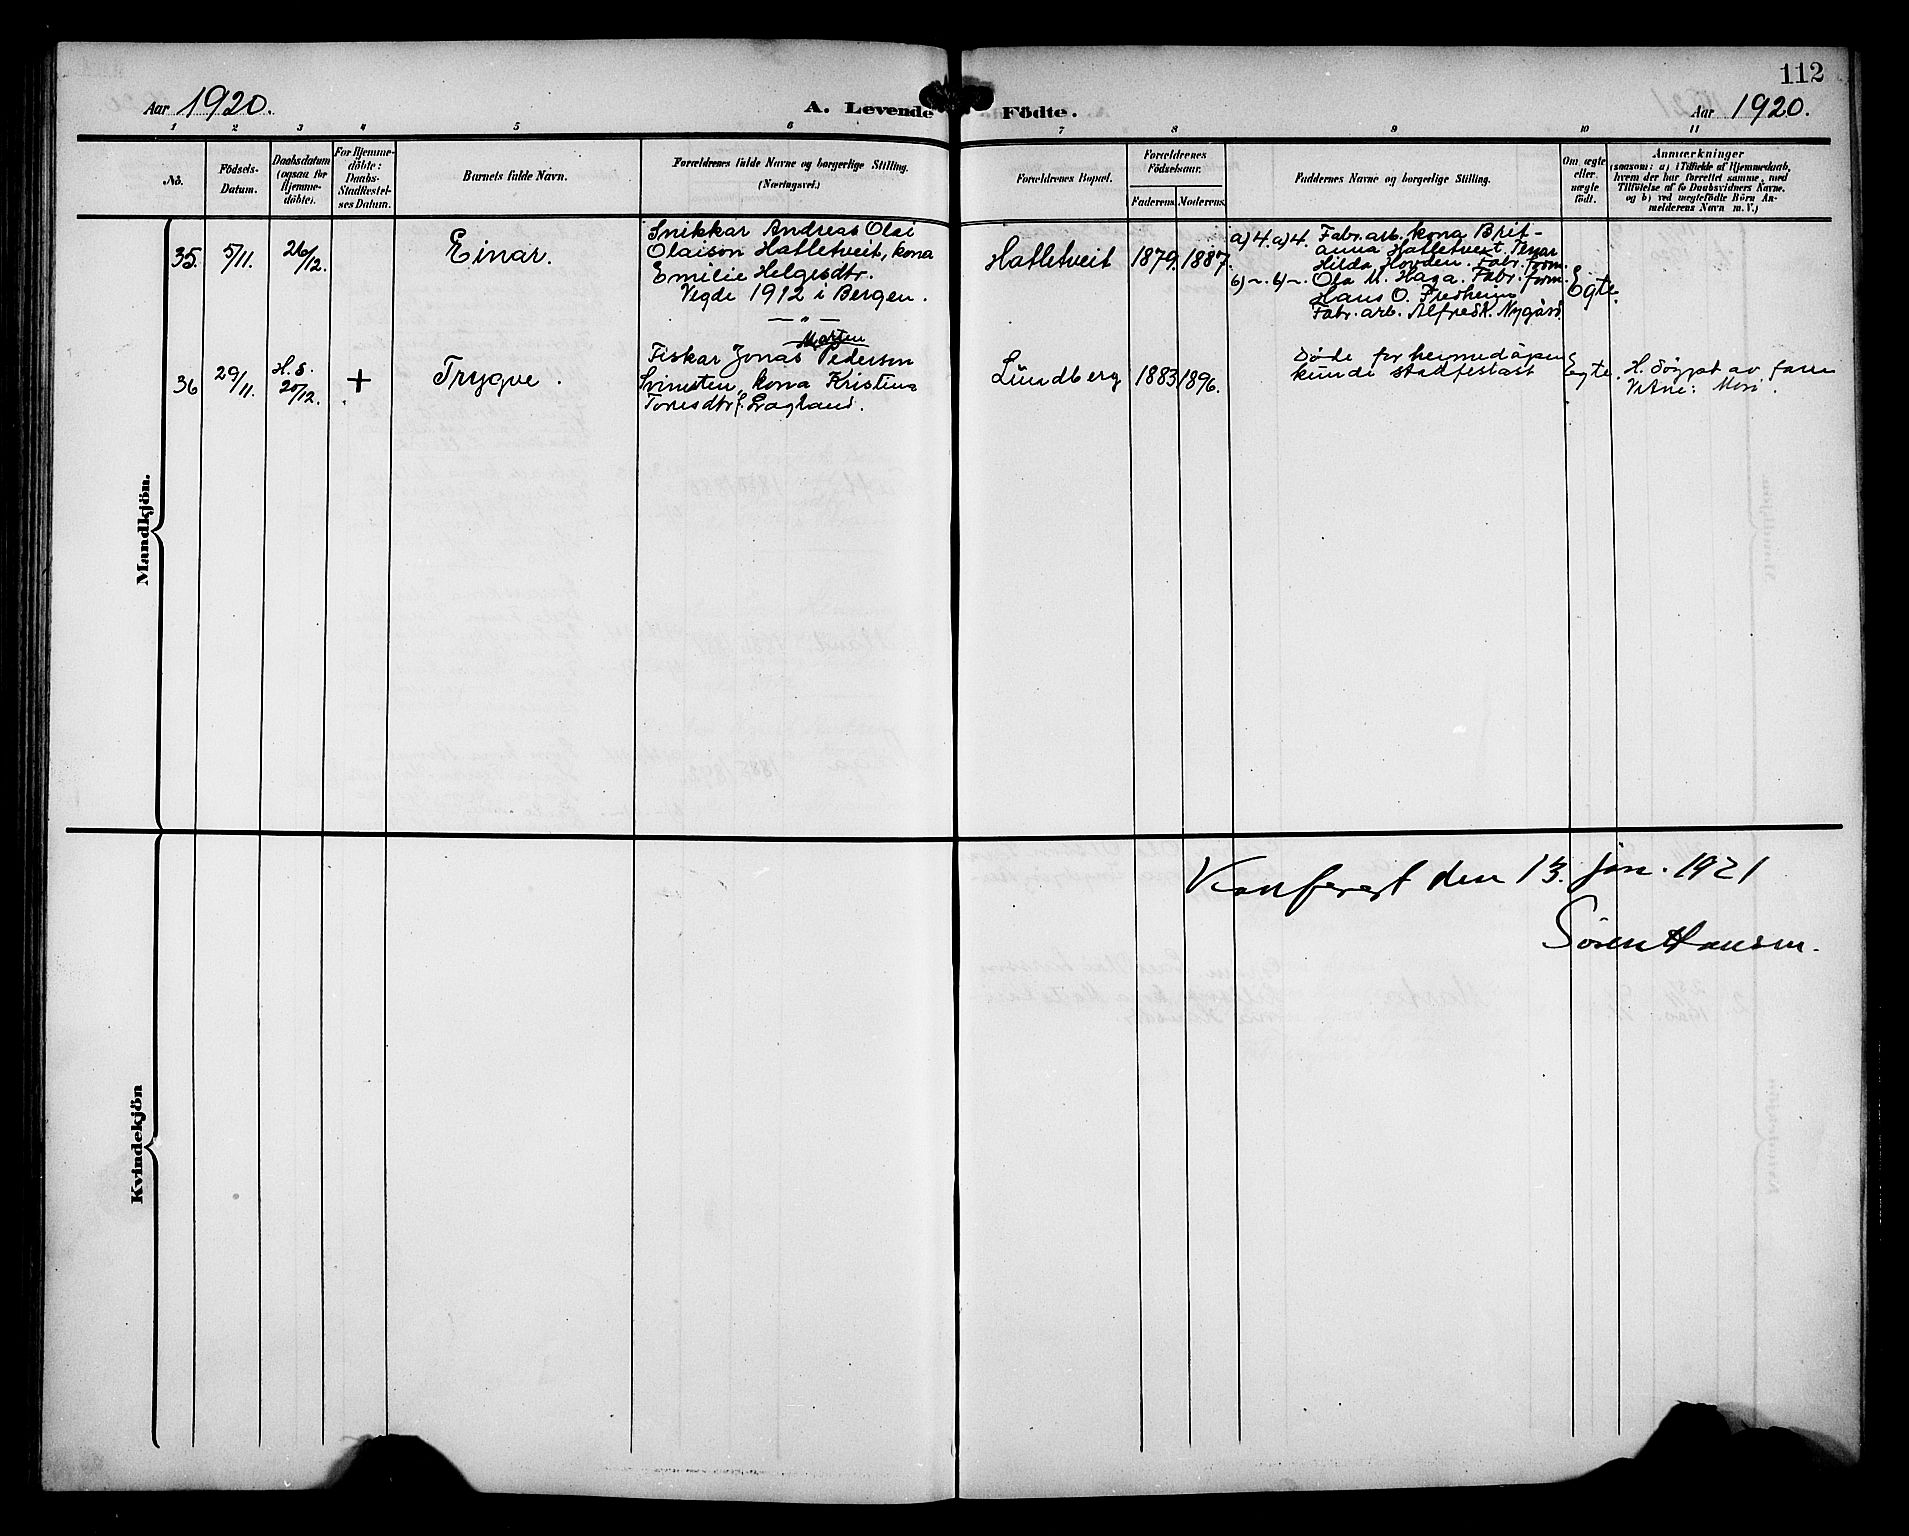 112
Aar 1920.
A. Levende Födte.
Aar 1920.
1 2 3 4 5 6 7 8 9 10 11
No.
Födsels-
Datum.
Daabsdatum
(ogsaa for
Hjemme-
döbte).
For Hjemme-
döbte:
Daabs-
Stadfæstel-
ses Datum.
Barnets fulde Navn.
Forældrenes fulde Navne og borgerlige Stilling.
(Næringsvei.)
Forældrenes Bopæl.
Forældrenes
Födselsaar.
Faderens. Moderens.
Faddernes Navne og borgerlige Stilling.
Om ægte
eller
uægte
födt.
Anmærkninger
(saasom: a) i Tilfælde af Hjemmedaab,
hvem der har forrettet samme, med
Tilföielse af to Daabsvidners Navne.
og b) ved uægtefödte Börn An-
melderens Navn m. V.)
Mandkjön.
35. 5/11. 26/12. Einar.
Snikkar Andreas Olai
Olaison Hatletveit, kona
Emilie Helgesdtr.
Vegde 1912 i Bergen.
— " —
Hatletveit 1879. 1887.
a) 4. a) 4. Fabr. arb. kona Brit-
anna Hatletveit
Hilda Hovden. Fabr. form.
b) ~. b) ~. Ola M. Haga. Fabr. form.
Hans O. Fredheim
Fabr. arb. Alfred K. Nygård.
Egte.
36 29/11. H. d. 20/12. + Trygve.
Morten
Fiskar Jonas Pederson
Svinesten, kona Kristina
Tonesdtr f.
Lundberg 1883 1896.
Døde før heimedåpen
kunde stadfestast
Egte.
H. døypt av faren
Vitne: Mori.
Kvindekjön
Konferert den 13. jan. 1921
Søren Hansen.